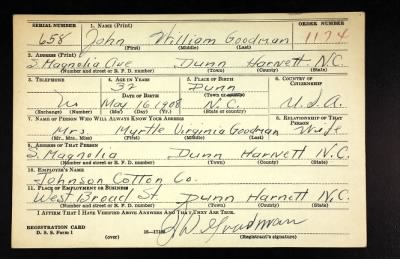 SERIAL NUMBER 1. NAME (Print) ORDER NUMBER
658 John William Goodman 1174
(First) (Middle) (Last)
2. ADDRESS (Print)
S. Magnolia Ave Dunn Harnett N.C.
(Number and street or R. F. D. number) (Town) (County) (State)
3. TELEPHONE 4. AGE IN YEARS 5. PLACE OF BIRTH 6. COUNTRY OF CITIZENSHIP
32 Dunn
DATE OF BIRTH (Town or county)
No May 16 1908 N.C. U.S.A.
(Exchange) (Number) (Mo.) (Day) (Yr.) (State or country)
7. NAME OF PERSON WHO WILL ALWAYS KNOW YOUR ADDRESS 8. RELATIONSHIP OF THAT PERSON
Mrs Myrtle Virginia Goodman Wife
(Mr., Mrs., Miss) (First) (Middle) (Last)
9. ADDRESS OF THAT PERSON
S. Magnolia Dunn Harnett N.C.
(Number and street or R. F. D. number) (Town) (County) (State)
10. EMPLOYER'S NAME
Johnson Cotton Co.
11. PLACE OF EMPLOYMENT OR BUSINESS
West Broad St. Dunn Harnett N.C.
(Number and street or R. F. D. number) (Town) (County) (State)
I AFFIRM THAT I HAVE VERIFIED ABOVE ANSWERS AND THAT THEY ARE TRUE.
REGISTRATION CARD J W Goodman
D. S. S. Form 1 (over) (Registrant's signature)